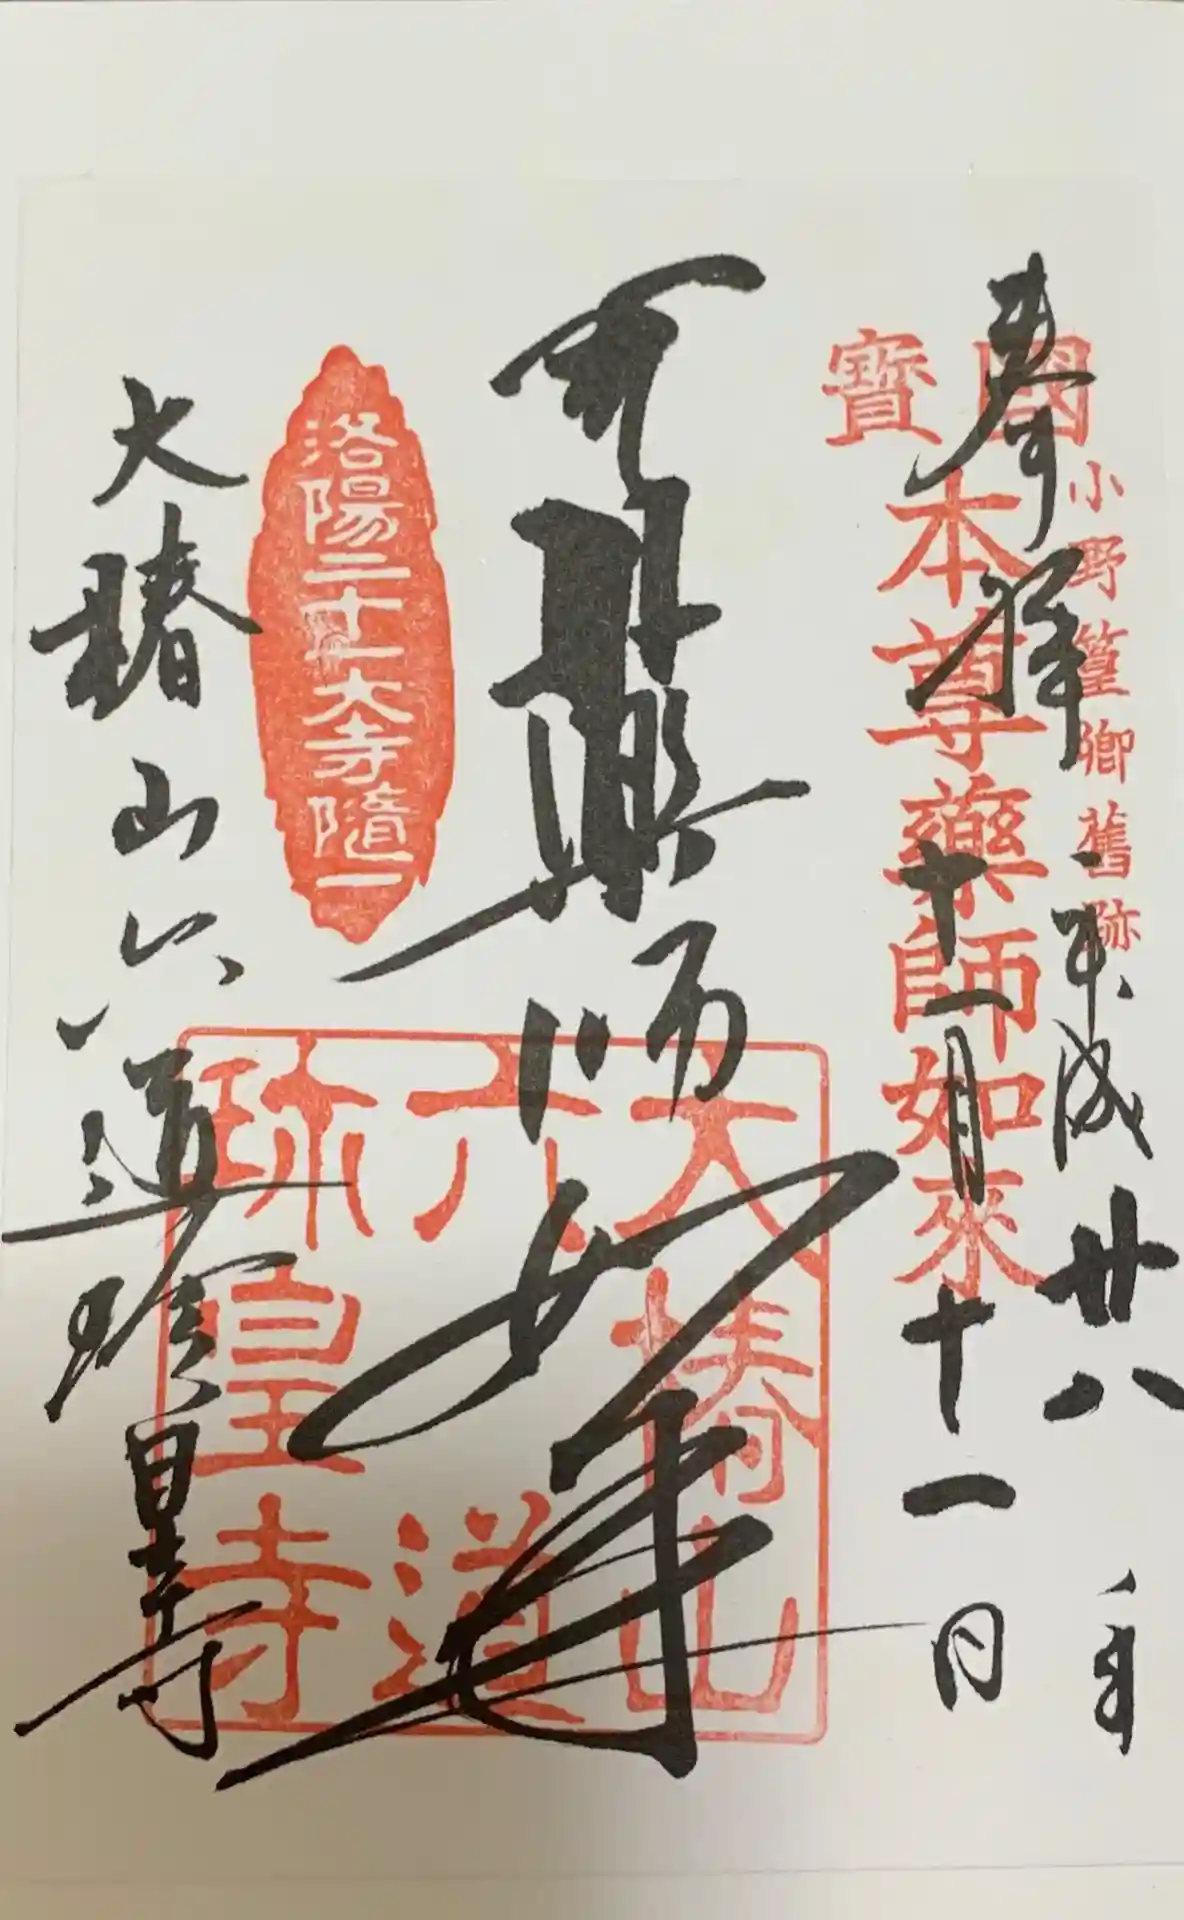 奉拝
平成廿八年
十一月十一日
國寶
小野篁卿舊跡
本尊藥師如來
醫王
師如来
洛陽二十五大寺隨一
大椿山
六道
珎皇寺
大椿山六道珍皇寺